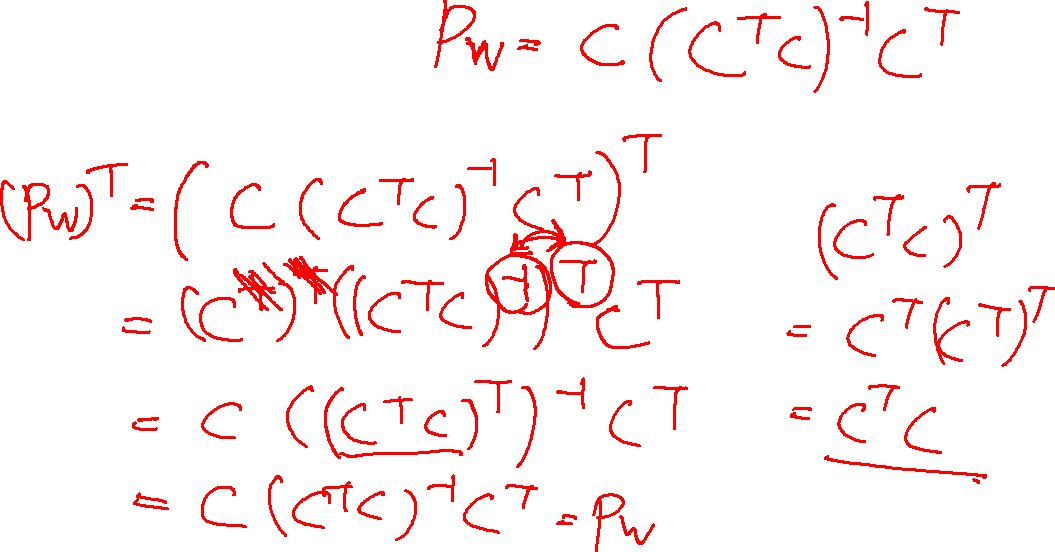 P_W = C (C^T C)^{-1} C^T
(P_W)^T = (C (C^T C)^{-1} C^T)^T
= (C) ((C^T C)^{-1})^T C^T
= C ((C^T C)^T)^{-1} C^T
= C (C^T C)^{-1} C^T = P_W
(C^T C)^T
= C^T (C^T)^T
= C^T C